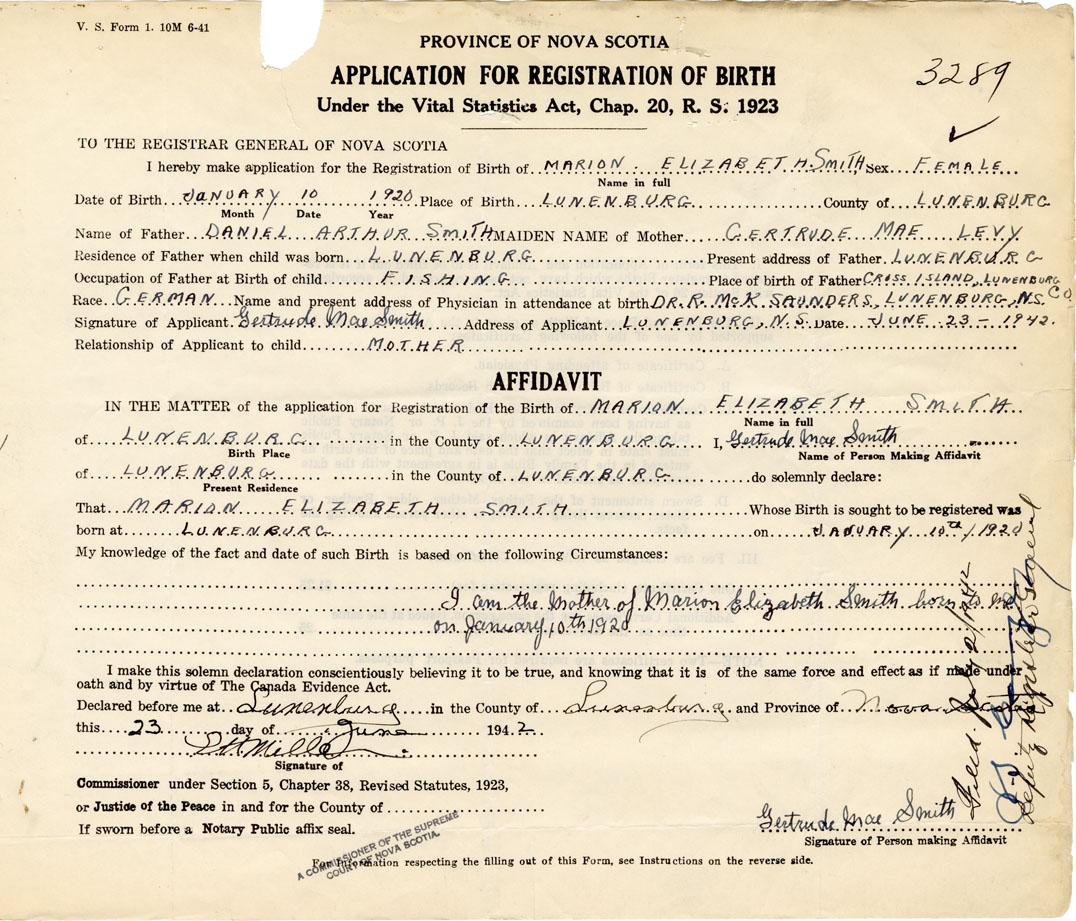 V. S. Form 1. 10M 6-41
PROVINCE OF NOVA SCOTIA
APPLICATION FOR REGISTRATION OF BIRTH
3289
Under the Vital Statistics Act, Chap. 20, R. S. 1923
TO THE REGISTRAR GENERAL OF NOVA SCOTIA
I hereby make application for the Registration of Birth of MARION. ELIZABETH. Smith Sex FEMALE
Name in full
Date of Birth JANUARY 10 1920 Place of Birth LUNENBURG County of LUNENBURG
Month Date Year
Name of Father DANIEL ARTHUR SMITH MAIDEN NAME of Mother GERTRUDE MAE LEVY
Residence of Father when child was born LUNENBURG Present address of Father LUNENBURG
Occupation of Father at Birth of child FISHING Place of birth of Father CROSS ISLAND, LUNENBURG CO
Race GERMAN Name and present address of Physician in attendance at birth DR. R. McK SAUNDERS, LUNENBURG, N.S.
Signature of Applicant Gertrude Mae Smith Address of Applicant LUNENBURG, N.S. Date JUNE 23 - 1942.
Relationship of Applicant to child MOTHER
AFFIDAVIT
IN THE MATTER of the application for Registration of the Birth of MARION ELIZABETH SMITH
Name in full
of LUNENBURG in the County of LUNENBURG I, Gertrude Mae Smith
Birth Place Name of Person Making Affidavit
of LUNENBURG in the County of LUNENBURG do solemnly declare:
Present Residence
That MARION ELIZABETH SMITH Whose Birth is sought to be registered was
born at LUNENBURG on JANUARY 10th / 1920
My knowledge of the fact and date of such Birth is based on the following Circumstances:
I am the Mother of Marion Elizabeth Smith born to me
on January 10th 1920
I make this solemn declaration conscientiously believing it to be true, and knowing that it is of the same force and effect as if made under
oath and by virtue of The Canada Evidence Act.
Declared before me at Lunenburg in the County of Lunenburg and Province of Nova Scotia
this 23 day of June 1942
Signature of
Commissioner under Section 5, Chapter 38, Revised Statutes, 1923,
or Justice of the Peace in and for the County of
If sworn before a Notary Public affix seal.
A COMMISSIONER OF THE SUPREME
COURT OF NOVA SCOTIA.
Gertrude Mae Smith
Signature of Person making Affidavit
For Information respecting the filling out of this Form, see Instructions on the reverse side.
Filed July 2/1942
Deputy Registrar General